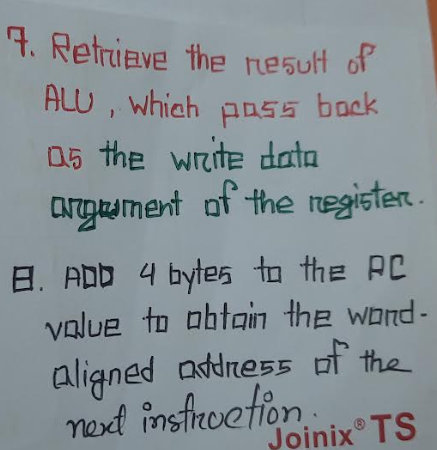 7. Retrieve the result of
ALU, which pass back
as the write data
argument of the register.
8. ADD 4 bytes to the PC
value to obtain the word-
aligned address of the
next instruction.
Joinix® TS